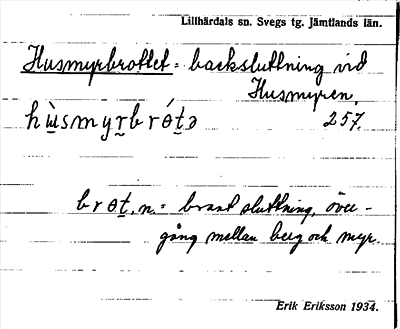 Lillhärdals sn. Svegs tg. Jämtlands län.
Husmyrbrottet = backsluttning vid
Husmyren.
hùsmyrbrótə 257.
brot, n. = brant sluttning, över-
gång mellan berg och myr.
Erik Eriksson 1934.